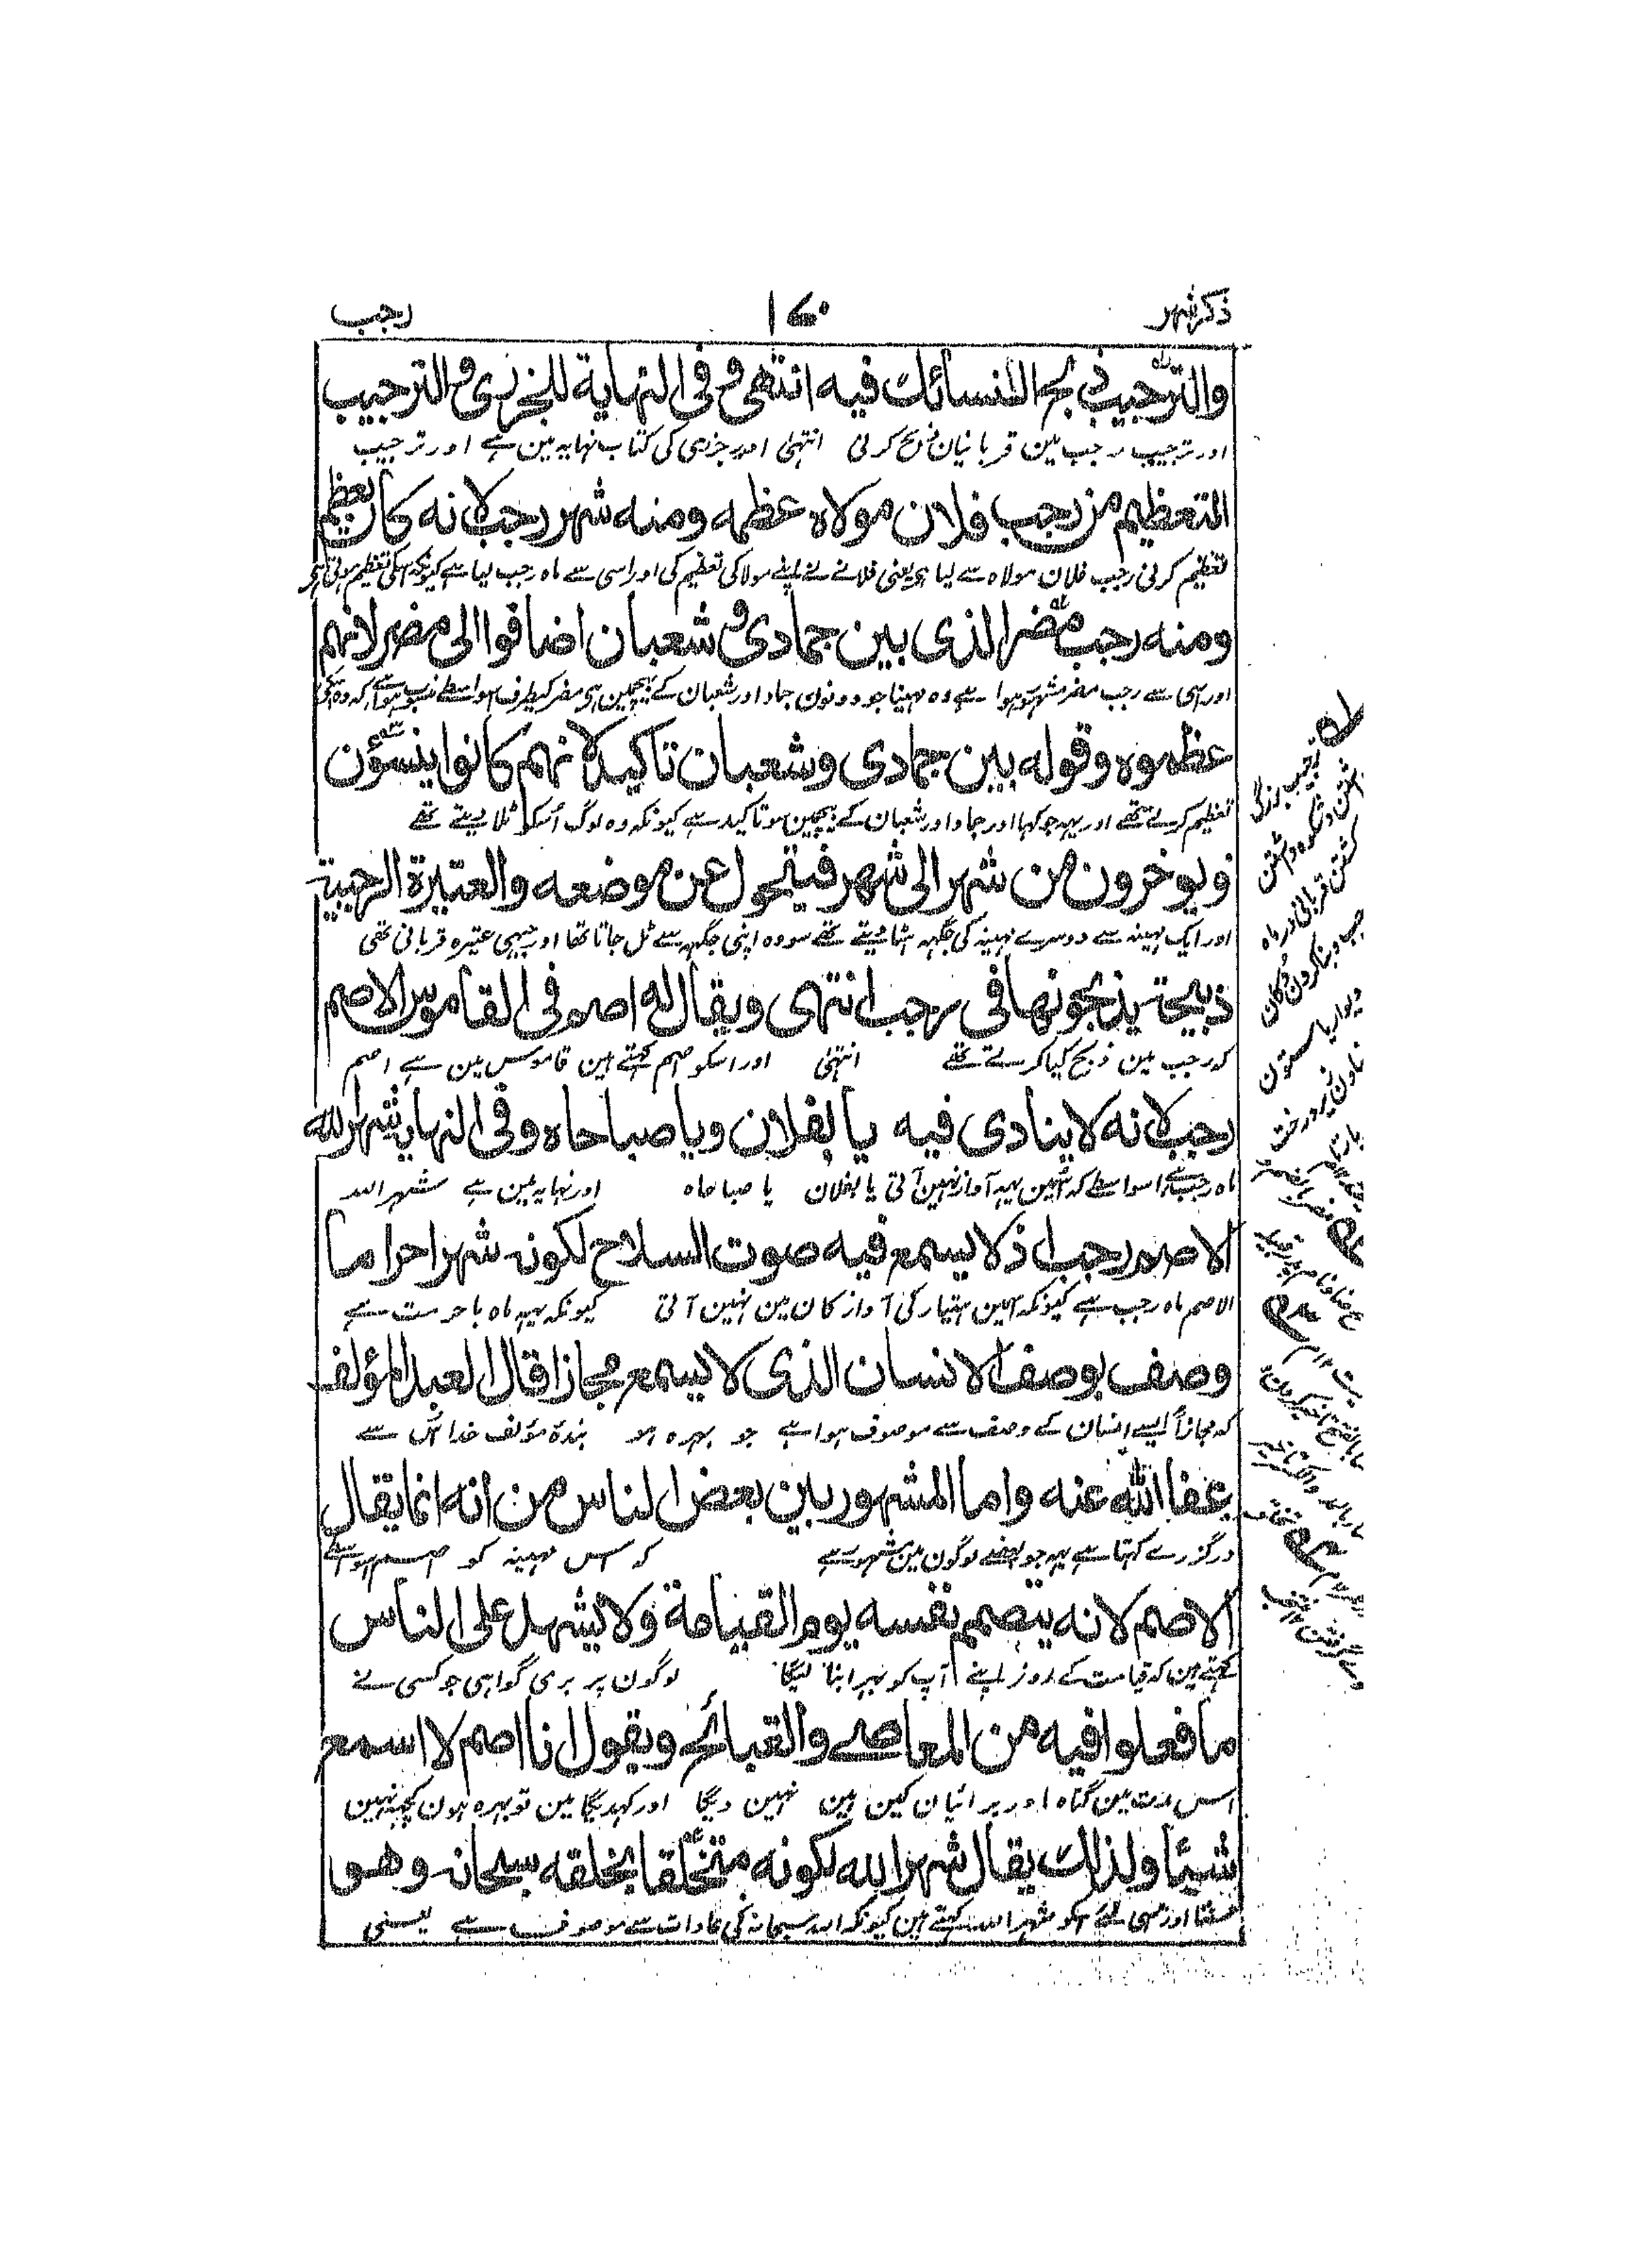 ذکر شہر ۱۷۰ رجب
والترجیب ذبح النسائك فیه انتهی و فی النهایة للجزری و الترجیب
اور ترجیب رجب مین قربانیان ذبح کرنی انتہیٰ اور جزری کی کتاب نہایہ مین ہے اور ترجیب
التعظیم من رجب فلان مولاه عظمه ومنه شهر رجب لانه کان یعظم
تعظیم کرنی رجب فلان مولاہ سے لیا ہی یعنی فلانے نے اپنے مولا کی تعظیم کی اور اسی سے ماہ رجب لیا ہے کیونکہ اسکی تعظیم ہوتی تھی
ومنه رجب مضر الذی بین جمادی و شعبان اضافوا الی مضر لانهم
اور اسی سے رجب مضر مشہور ہوا ہے وہ مہینا جو دونون جماد اور شعبان کے بیچمین ہی مضر کیطرف اسواسطے منسوب ہوا کہ وہ اسکی
عظموه وقوله بین جمادی وشعبان تاکید لانهم کانوا ینسؤن
تعظیم کرتے تھے اور یہہ جو کہا اور جمادا اور شعبان کے بیچمین ہو تاکید ہے کیونکہ وہ لوگ اُسکو ٹلا دیتے تھے
ویوخرون من شهر الی شهر فیتحول عن موضعه والعتیرة الرجبیة
اور ایک مہینہ سے دوسرے مہینہ کی جگہہ ہٹا دیتے تھے سو وہ اپنی جگہہ سے ٹل جاتا تھا اور رجبی عتیرہ قربانی تھی
ذبیحة یذبحونها فی رجب انتهی ویقال له اصم و فی القاموس الاصم
کہ رجب مین ذبح کیا کرتے تھے انتہیٰ اور اسکو اصم کہتے ہین قاموس مین ہے اصم
رجب لانه لا ینادی فیه یا لفلان ویا صباحاه وفی النهایة شهر الله
ماہ رجب ہے اسواسطے کہ اُسمین یہہ آواز نہین آتی یا لفلان یا صباحاہ اور نہایہ مین ہے شہر اللہ
الاصم رجب اذ لا یسمع فیه صوت السلاح لکونه شهرا حراما
الاصم ماہ رجب ہے کیونکہ اسمین ہتیار کی آواز کان مین نہین آتی کیونکہ یہہ ماہ با حرمت ہے
وصف بوصف الانسان الذی لا یسمع مجازا قال العبد المؤلف
کہ مجازاً ایسے انسان کے وصف سے موصوف ہوا ہے جو بہرہ ہو بندۂ مؤلف خدا اُس سے
عفا الله عنه واما المشهور بین بعض الناس من انه انما یقال
درگزرے کہتا ہے یہہ جو بعضے لوگون مین مشہور ہے کہ اس مہینہ کو اصم اسواسطے
الاصم لانه یتصمم بنفسه یوم القیامة ولا یشهد علی الناس
کہتے ہین کہ قیامت کے روز اپنے آپ کو بہرا بنا لیگا لوگون پر بری گواہی جو کسی نے
ما فعلوا فیه من المعاصی والقبائح ویقول انا اصم لا اسمع
اس مدت مین گناہ اور برائیان کین ہین نہین دیگا اور کہدیگا مین تو بہرہ ہون کچہہ نہین
شیئا ولذلك یقال شهر الله لکونه متخلقا بخلقه سبحانه وهو
سنتا اور اسی لئے اسکو شہر اللہ کہتے ہین کیونکہ اللہ سبحانہ کی عادات سے موصوف ہے یعنی
ترجیب بزرگ
داشتن وشکوہ داشتن
کشتن قربانی در ماہ
رجب و بنا کردن دکان
دیوار یا ستون
نہادن زیر درخت